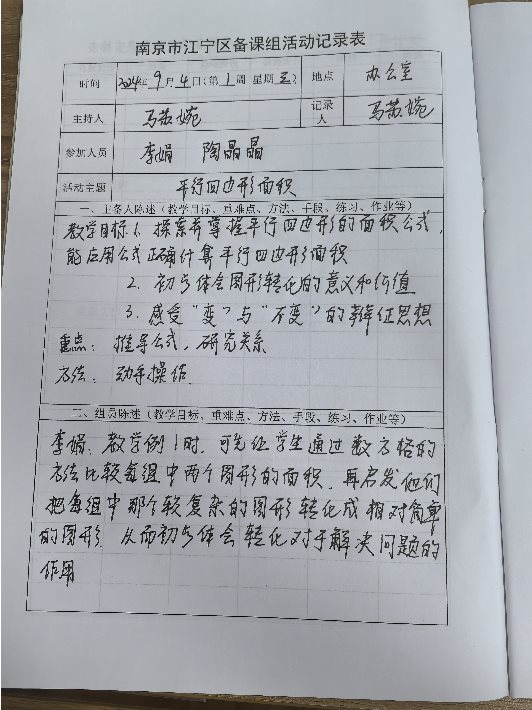 南京市江宁区备课组活动记录表
时间 2024年9月4日(第1周 星期三) 地点 办公室
主持人 马茜婉 记录人 马茜婉
参加人员 李娟 陶晶晶
活动主题 平行四边形面积
一、主备人陈述（教学目标、重难点、方法、手段、练习、作业等）
教学目标1. 探索并掌握平行四边形的面积公式,
能应用公式正确计算平行四边形面积
2. 初步体会图形转化的意义和价值
3. 感受“变”与“不变”的辩证思想
重点: 推导公式, 研究关系
方法: 动手操作.
二、组员陈述（教学目标、重难点、方法、手段、练习、作业等）
李娟. 教学例1时, 可先让学生通过数方格的
方法比较每组中两个图形的面积. 再启发他们
把每组中那个较复杂的图形转化成相对简单
的图形. 从而初步体会转化对于解决问题的
作用